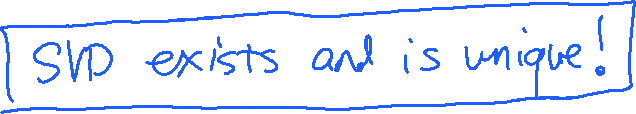 SVD exists and is unique!